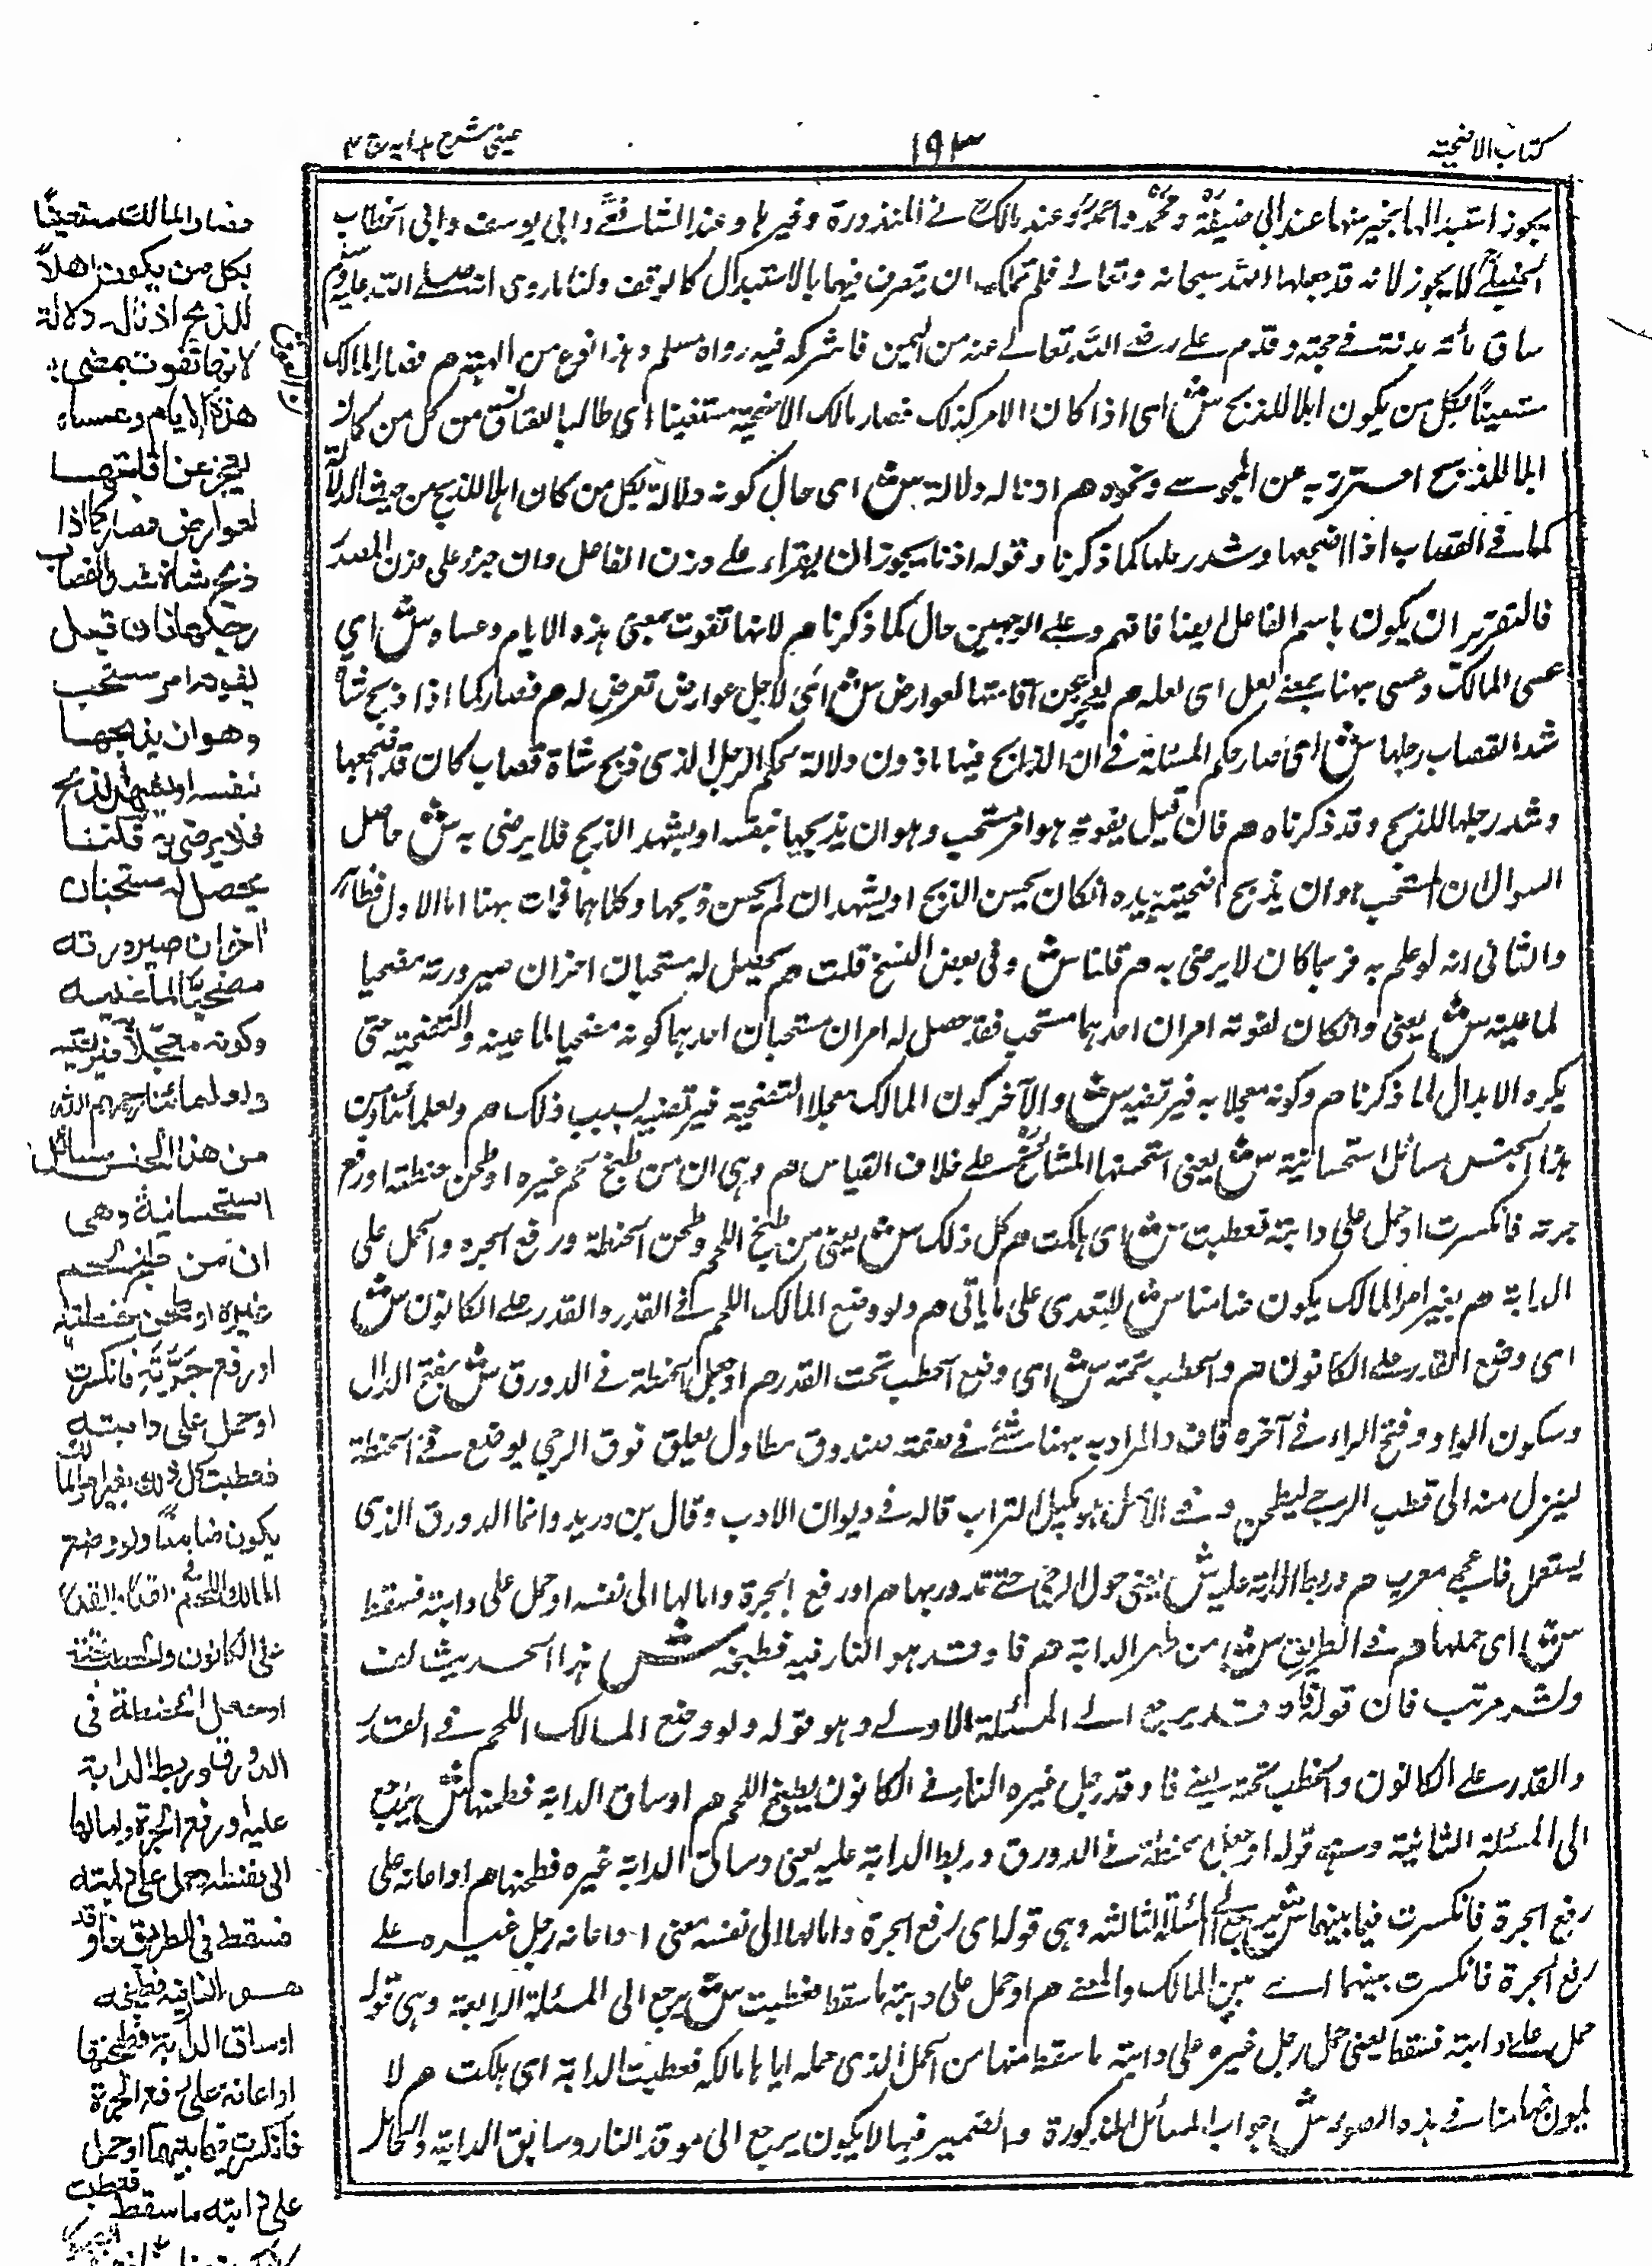 كتاب الاضحية
١٩٣
عينى شرح هدايه ج ٤
يجوز استبدالها بخير منها عند ابى حنيفة ومحمد واحمد وعند مالك فى المنذورة وغيرها وعند الشافعى وابى يوسف وابى الخطاب
الحنبلى لا يجوز لانه قد جعلها الله سبحانه وتعالى فلم تملك ان يتصرف فيها بالاستبدال كالوقف ولنا ما روى انه صلى الله عليه وسلم
ساق مائة بدنة فى حجته وقدم على رضى الله تعالى عنه من اليمن فاشركه فيه رواه مسلم وهذا نوع من الهبة هم فصار المالك
مستعينا بكل من يكون اهلا للذبح ش اى اذا كان الامر كذلك فصار مالك الاضحية مستعينا اى طالبا من كل من كان
اهلا للذبح احترز به عن المجوسى ونحوه هم اذنا له دلالة ش اى حال كونه دلالة بكل من كان اهلا للذبح من حيث الدلالة
كما فى القصاب اذا اضجعها وشد رجلها كما ذكرنا وقوله اذنا يجوز ان يقراء على وزن الفاعل وان على وزن المصدر
فالتقدير ان يكون باسم الفاعل ايضا فافهم وعلى الوجهين حال كما ذكرنا هم لانها تفوت بمضى هذه الايام وعساه ش اى
عسى المالك وعسى ههنا بمعنى لعل اى لعله هم يعجز عن اقامتها لعوارض ش اى لاجل عوارض تعرض له هم فصار كما اذا ذبح شاة
شد القصاب رجلها ش اى صار حكم المسئلة فى ان الذابح فيها ماذون دلالة كحكم الرجل الذى ذبح شاة قصاب كان قد اضجعها
وشد رجلها للذبح وقد ذكرناه هم فان قيل يفوته هو امر مستحب وهو ان يذبحها بنفسه او يشهد الذبح فلا يرضى به ش حاصل
السوال ان المستحب هو ان يذبح اضحيته بيده انكان يحسن الذبح او يشهد ان لم يحسن ذبحها وكلاهما فات ههنا اما الاول فظاهر
والثانى انه لو علم به فربما كان لا يرضى به هم قلنا ش وفى بعض النسخ قلت هم يحصل له مستحبان اخران صيرورته مضحيا
لما عينه ش يعنى وانكان لفوته امران احدهما مستحب فقد حصل له امران مستحبان احدهما كونه مضحيا لما عينه والتضحية حتى
يكره الابدال لما ذكرنا هم وكونه معجلا به فيرتضيه ش والآخر كون المالك معجلا التضحية فيرتضيه بسبب ذلك هم ولعلمائنا من
هذا الجنس مسائل استحسانية ش يعنى استحسنها المشائخ على خلاف القياس هم وهى ان من طبخ لحم غيره او طحن حنطته او رفع
جرته فانكسرت او حمل على دابته فعطبت ش اى هلكت هم كل ذلك ش يعنى من طبخ اللحم وطحن الحنطة ورفع الجره والحمل على
الدابة هم بغير امر المالك يكون ضامنا ش للتعدى على ما ياتى هم ولو وضع المالك اللحم فى القدر والقدر على الكانون ش
اى وضع القدر على الكانون هم والحطب تحته ش اى وضع الحطب تحت القدر هم او جعل الحنطة فى الدورق ش بفتح الدال
وسكون الواو وفتح الراء فى آخره قاف والمراد به ههنا شئ فى صفة صندوق مطاول يعلق فوق الرحى يوضع فى الحنطة
لينزل منه الى قطب الرحى ليطحن وفى الاصل هو مكيال التراب قاله فى ديوان الادب وقال بن دريد وانما الدورق الذى
يستعمل فاعجمى معرب هم وربط الدابة عليه ش يعنى حول الرحى حتى تدور بها هم او رفع الجرة وامالها الى نفسه او حمل على دابته فسقط
ش اى حملها هم فى الطريق ش من ظهر الدابة هم فاوقد هو النار فيه فطبخه ش هذا الحديث لف
ونشر مرتب فان قوله فاوقد يرجع الى المسئلة الاولى وهو قوله ولو وضع المالك اللحم فى القدر
والقدر على الكانون والحطب تحته يعنى فاوقد رجل غيره النار فى الكانون يطبخ اللحم هم او ساق الدابة فطحنها ش يرجع
الى المسئلة الثانية وهى قوله او جعل الحنطة فى الدورق وربط الدابة عليه يعنى وساق الدابة غيره فطحنها هم او اعانه على
رفع الجرة فانكسرت فيما بينهما ش يرجع الى المسئلة الثالثة وهى قوله اى رفع الجرة وامالها الى نفسه معنى او اعانه رجل غيره على
رفع الجرة فانكسرت بينهما اى بين المالك والمعين هم او حمل على دابته ما سقط فعطبت ش يرجع الى المسئلة الرابعة وهى قوله
حمل على دابته فسقط يعنى حمل رجل غيره على دابته ما سقط منها من الحمل الذى حمله اياها مالكه فعطبت الدابة اى هلكت هم لا
يكون ضامنا فى هذه الصور ش جواب المسائل المذكورة والضمير فيها لا يكون يرجع الى موقد النار وسائق الدابة والحامل
فصار المالك مستعينا
بكل من يكون اهلا
للذبح اذنا له دلالة
لانها تفوت بمضى
هذه الايام وعساه
يعجز عن اقامتها
لعوارض فصار كما اذا
ذبح شاة شد القصاب
رجلها فان قيل
يفوته امر مستحب
وهو ان يذبحها
بنفسه او يشهد الذبح
فلا يرضى به قلنا
يحصل له مستحبان
اخران صيرورته
مضحيا لما عينه
وكونه معجلا به فيرتضيه
ولعلمائنا رحمهم الله
من هذا الجنس مسائل
استحسانية وهى
ان من طبخ لحم
غيره او طحن حنطته
او رفع جرته فانكسرت
او حمل على دابته
فعطبت كل ذلك بغير امر المالك
يكون ضامنا ولو وضع
المالك اللحم فى القدر والقدر
على الكانون والحطب تحته
او جعل الحنطة فى
الدورق وربط الدابة
عليه او رفع الجرة وامالها
الى نفسه او حمل على دابته
فسقط فى الطريق فاوقد
هو النار فيه فطبخه
او ساق الدابة فطحنها
او اعانه على رفع الجرة
فانكسرت فيما بينهما او حمل
على دابته ما سقط فعطبت